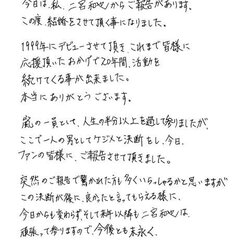 今日は、私、二宮和也からご報告があります。
この度、結婚をさせて頂く事になりました。
1999年にデビューさせて頂き、これまで皆様に
応援頂いたおかげで20年間、活動を
続けてくる事が出来ました。
本当にありがとうございます。
嵐の一員として、人生の半分以上を過して参りましたが、
ここで一人の男としてケジメと決断をし、今日、
ファンの皆様に、ご報告させて頂きました。
突然のご報告で驚かれた方も多くいらっしゃるかと思いますが
この決断が後に、良かったと言ってもらえる様に、
今日からも変わらず、そして来年以降も二宮和也は
頑張って参りますので、今後とも末永く、